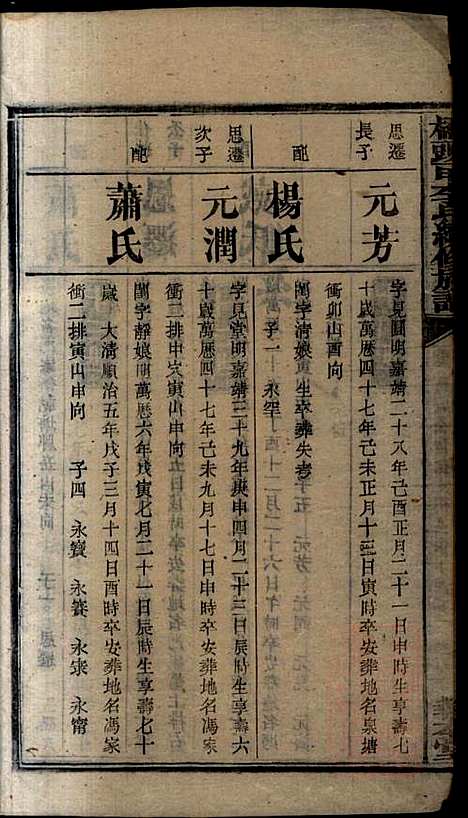 思遷
長子
元芳
字見圓明嘉靖二十八年己酉正月二十一日申時生享壽七
十歲萬曆四十七年己未正月十三日寅時卒安葬地名泉塘
衝卯山酉向
配
楊氏
閨字清娘 生卒葬失考
子一 永罕
思遷
次子
元潤
字見堂明嘉靖三十九年庚申四月二十三日辰時生享壽六
十歲萬曆四十七年己未九月十七日申時卒安葬地名馮家
衝二排申山寅向
配
蕭氏
閨字靜娘明萬曆六年戊寅七月二十一日辰時生享壽七十
歲 大清順治五年戊子三月十四日酉時卒安葬地名馮家
衝二排寅山申向 子四 永寶 永 永 永甯
李氏續修族譜